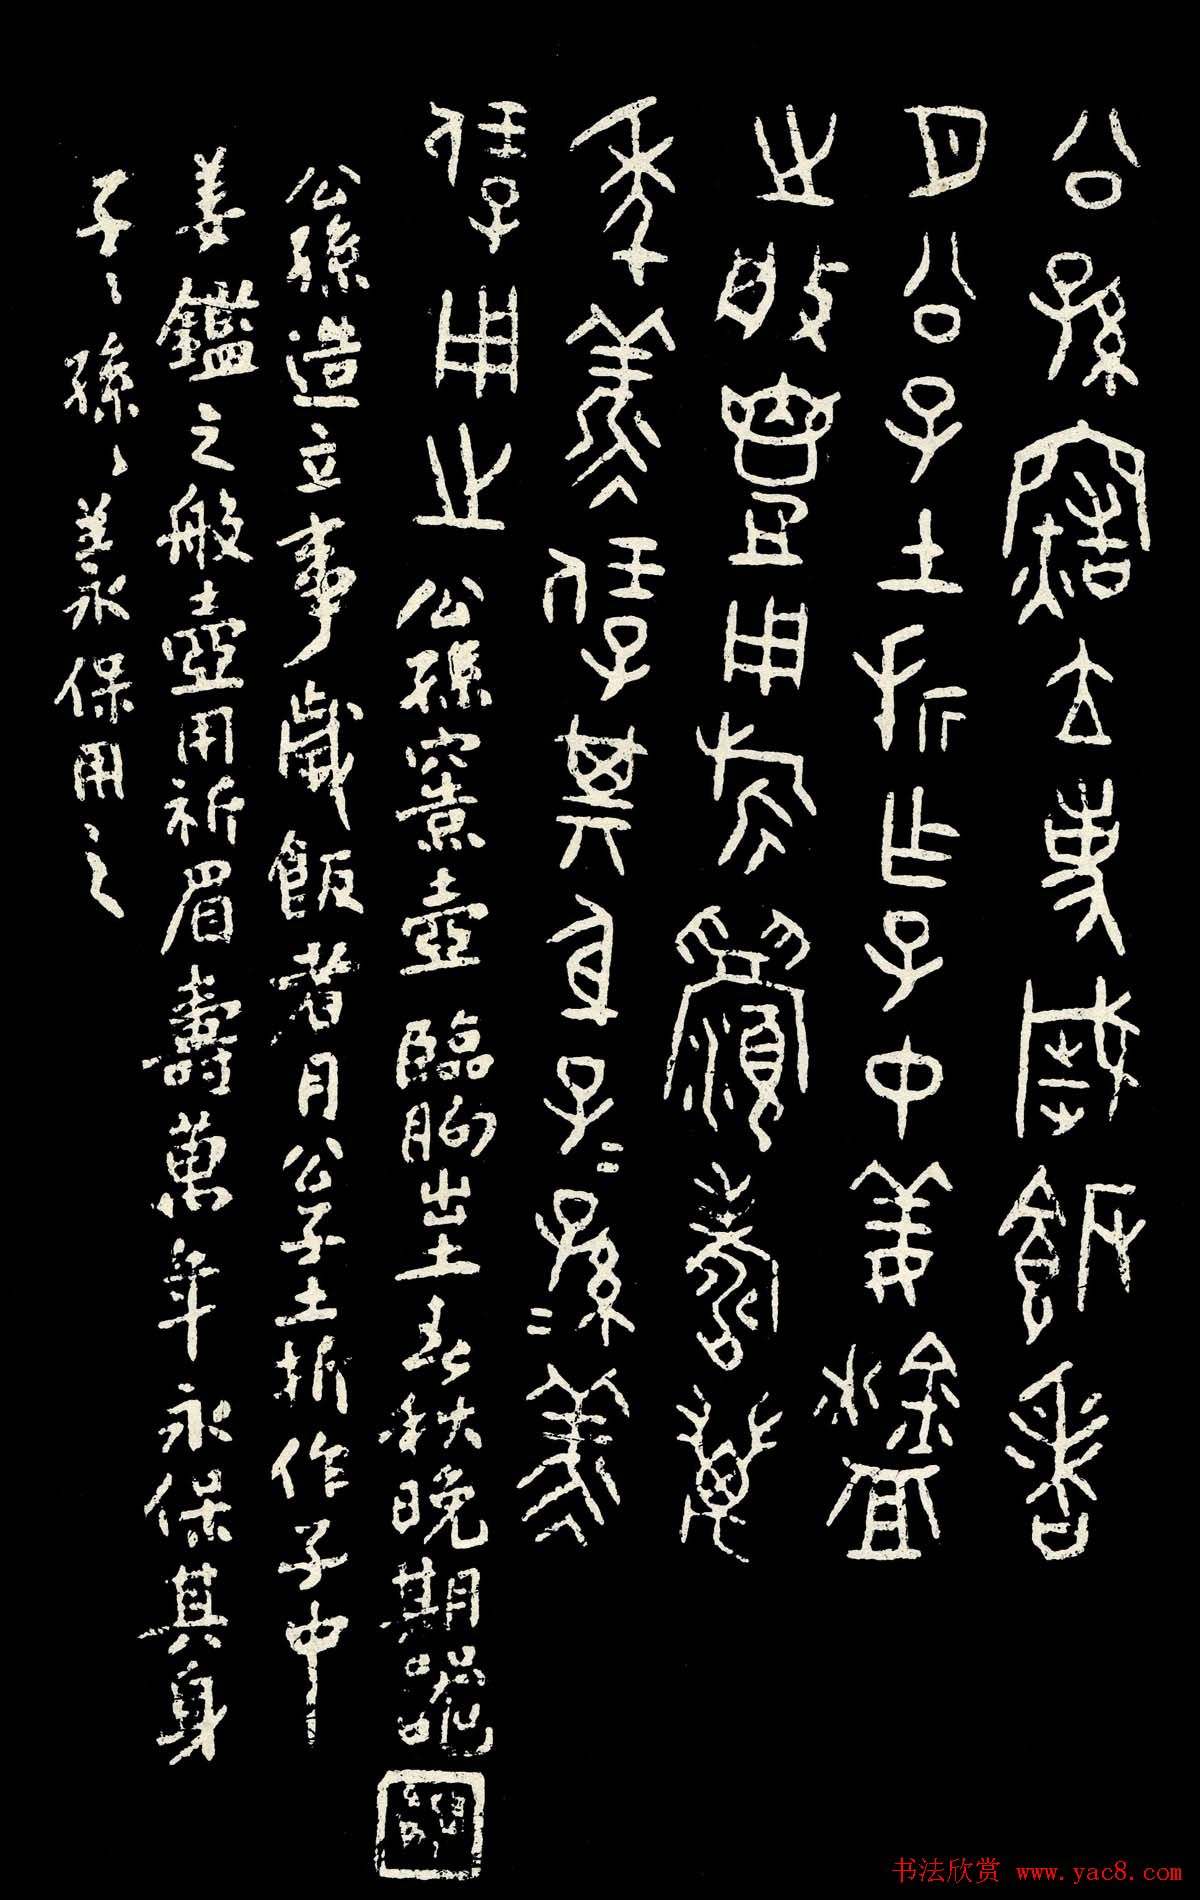 公孫竈立事歲飯者
月公子土折乍子中姜
之般壺用旂眉壽萬
年羕保其身子=孫=羕
保用之 公孫竈壺 臨朐出土春秋晚期器
公孫造立事歲飯者月公子土折作子中
姜鑑之般壺用祈眉壽萬年永保其身
子〻孫〻羕保用之
书法欣赏 www.yac8.com